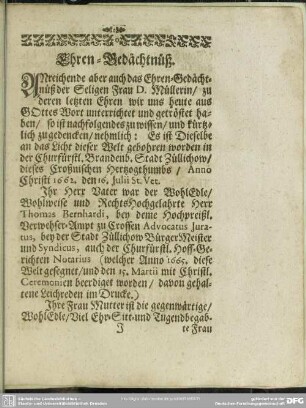 Ehren-Gedächtnüß.
ANreichende aber auch das Ehren-Gedächt-
nüß der Seligen Frau D. Müllerin / zu
deren letzten Ehren wir uns heute aus
GOttes Wort unterrichtet und getröstet ha-
ben / so ist nachfolgendes zu wissen / und kürtz-
lich zugedencken / nehmlich: Es ist Dieselbe
an das Licht dieser Welt gebohren worden in
der Churfürstl. Brandenb. Stadt Züllichow /
dieses Croßnischen Hertzogthumbs / Anno
Christi 1662. den 16. Julii St. Vet.
Ihr Herr Vater war der WohlEdle /
Wohlweise und RechtsHochgelahrte Herr
Thomas Bernhardi, bey deme Hochpreißl.
Verweser-Ampt zu Crossen Advocatus Jura-
tus, bey der Stadt Züllichow BürgerMeister
und Syndicus, auch der Churfürstl. Hoff-Ge-
richten Notarius (welcher Anno 1665. diese
Welt gesegnet / und den 15. Martii mit Christl.
Ceremonien beerdiget worden / davon gehal-
tene Leichreden im Drucke.)
Ihre Frau Mutter ist die gegenwärtige /
WohlEdle / Viel Ehr-Sitt-und Tugendbegab-
J te Frau